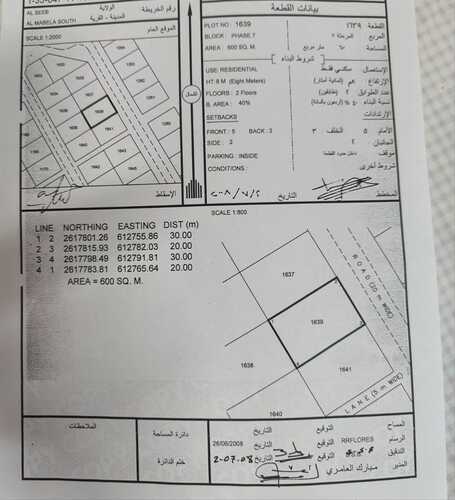 AL SEEB
الولاية
رقم الخريطة
AL MABELA SOUTH
المدينة - القرية
SCALE 1:2000
الموقع العام
1637
1639
1641
1640
الإسقاط
بيانات القطعة
PLOT NO : 1639
١٦٣٩ القطعة
BLOCK : PHASE 7
المربع المرحلة ٧
AREA : 600 SQ. M.
المساحة ٦٠٠ متر مربع
شروط البناء
USE: RESIDENTIAL
الإستعمال سكني فقط
HT: 8 M (Eight Meters)
الإرتفاع ٨م (ثمانية أمتار)
FLOORS : 2 Floors
عدد الطوابق ٢ (طابقين)
B. AREA : 40%
نسبة البناء ٤٠% (أربعون بالمائة)
SETBACKS
الإرتدادات
FRONT : 5 BACK : 3
الأمام ٥ الخلف ٣
SIDE : 2
الجانبان ٢
PARKING : INSIDE
موقف داخل حدود القطعة
CONDITIONS :
شروط أخرى
المخطط
التاريخ
SCALE 1:800
LINE NORTHING EASTING DIST (m)
1 2 2617801.26 612755.86 30.00
2 3 2617815.93 612782.03 20.00
3 4 2617798.49 612791.81 30.00
4 1 2617783.81 612765.64 20.00
AREA = 600 SQ. M.
1637
1639
1638
1641
1640
ROAD (20 m WIDE)
LANE (5 m WIDE)
الملاحظات
دائرة المساحة
ختم الدائرة
التاريخ التوقيع المساح
26/06/2008 التاريخ التوقيع RRFLORES الرسام
2-07-08 التاريخ التوقيع التدقيق
مبارك العامري المدير